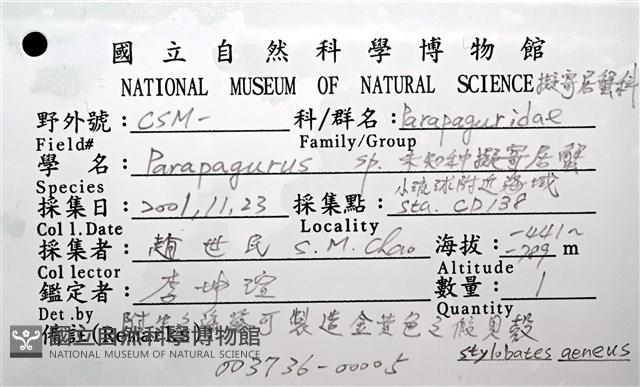 國立自然科學博物館
NATIONAL MUSEUM OF NATURAL SCIENCE 擬寄居蟹科
野外號：CSM- 科/群名：Parapaguridae
Field# Family/Group
學名：Parapagurus sp. 未知種擬寄居蟹
Species 小琉球附近海域
採集日：2001,11,23 採集點：sta. CD138
Coll.Date Locality
採集者：趙世民 S.M.Chao 海拔：-441~-709 m
Collector Altitude
鑑定者：李坤瑄 數量：1
Det.by Quantity
備註(Remarks) 附生之海葵可製造金黃色之擬貝殼
stylobates aeneus
003736-00005
國立自然科學博物館
NATIONAL MUSEUM OF NATURAL SCIENCE